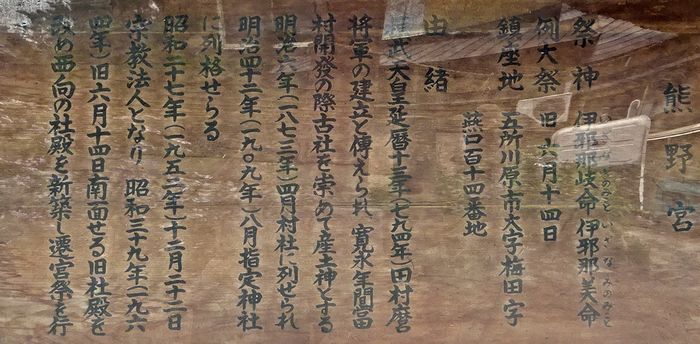 熊野宮
祭神 伊邪那岐命 伊邪那美命
いざなぎのみこと いざなみのみこと
例大祭 旧六月十四日
鎮座地 五所川原市大字梅田字
燕口百十四番地
由緒
武天皇延暦十三年(七九四年)田村麿
将軍の建立と傳えられ 寛永年間當
村開發の際古社を崇めて産土神とする
明治六年(一八七三年)四月村社に列せられ
明治四十二年(一九〇九年)八月指定神社
に列格せらる
昭和二十七年(一九五二年)十二月二十二日
宗教法人となり 昭和三十九年(一九六
四年)旧六月十四日南面せる旧社殿を
改め西向の社殿を新築し遷宮祭を行